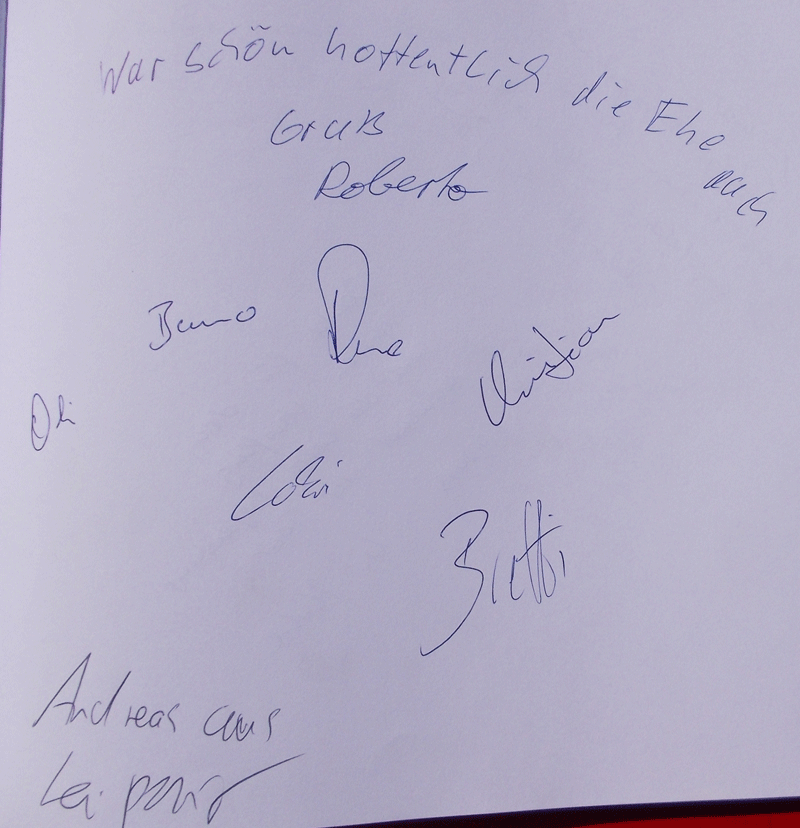 War schön hoffentlich die Ehe
auch
Gruß
Roberto
Bruno
Christian
Oli
Andreas aus
Leipzig